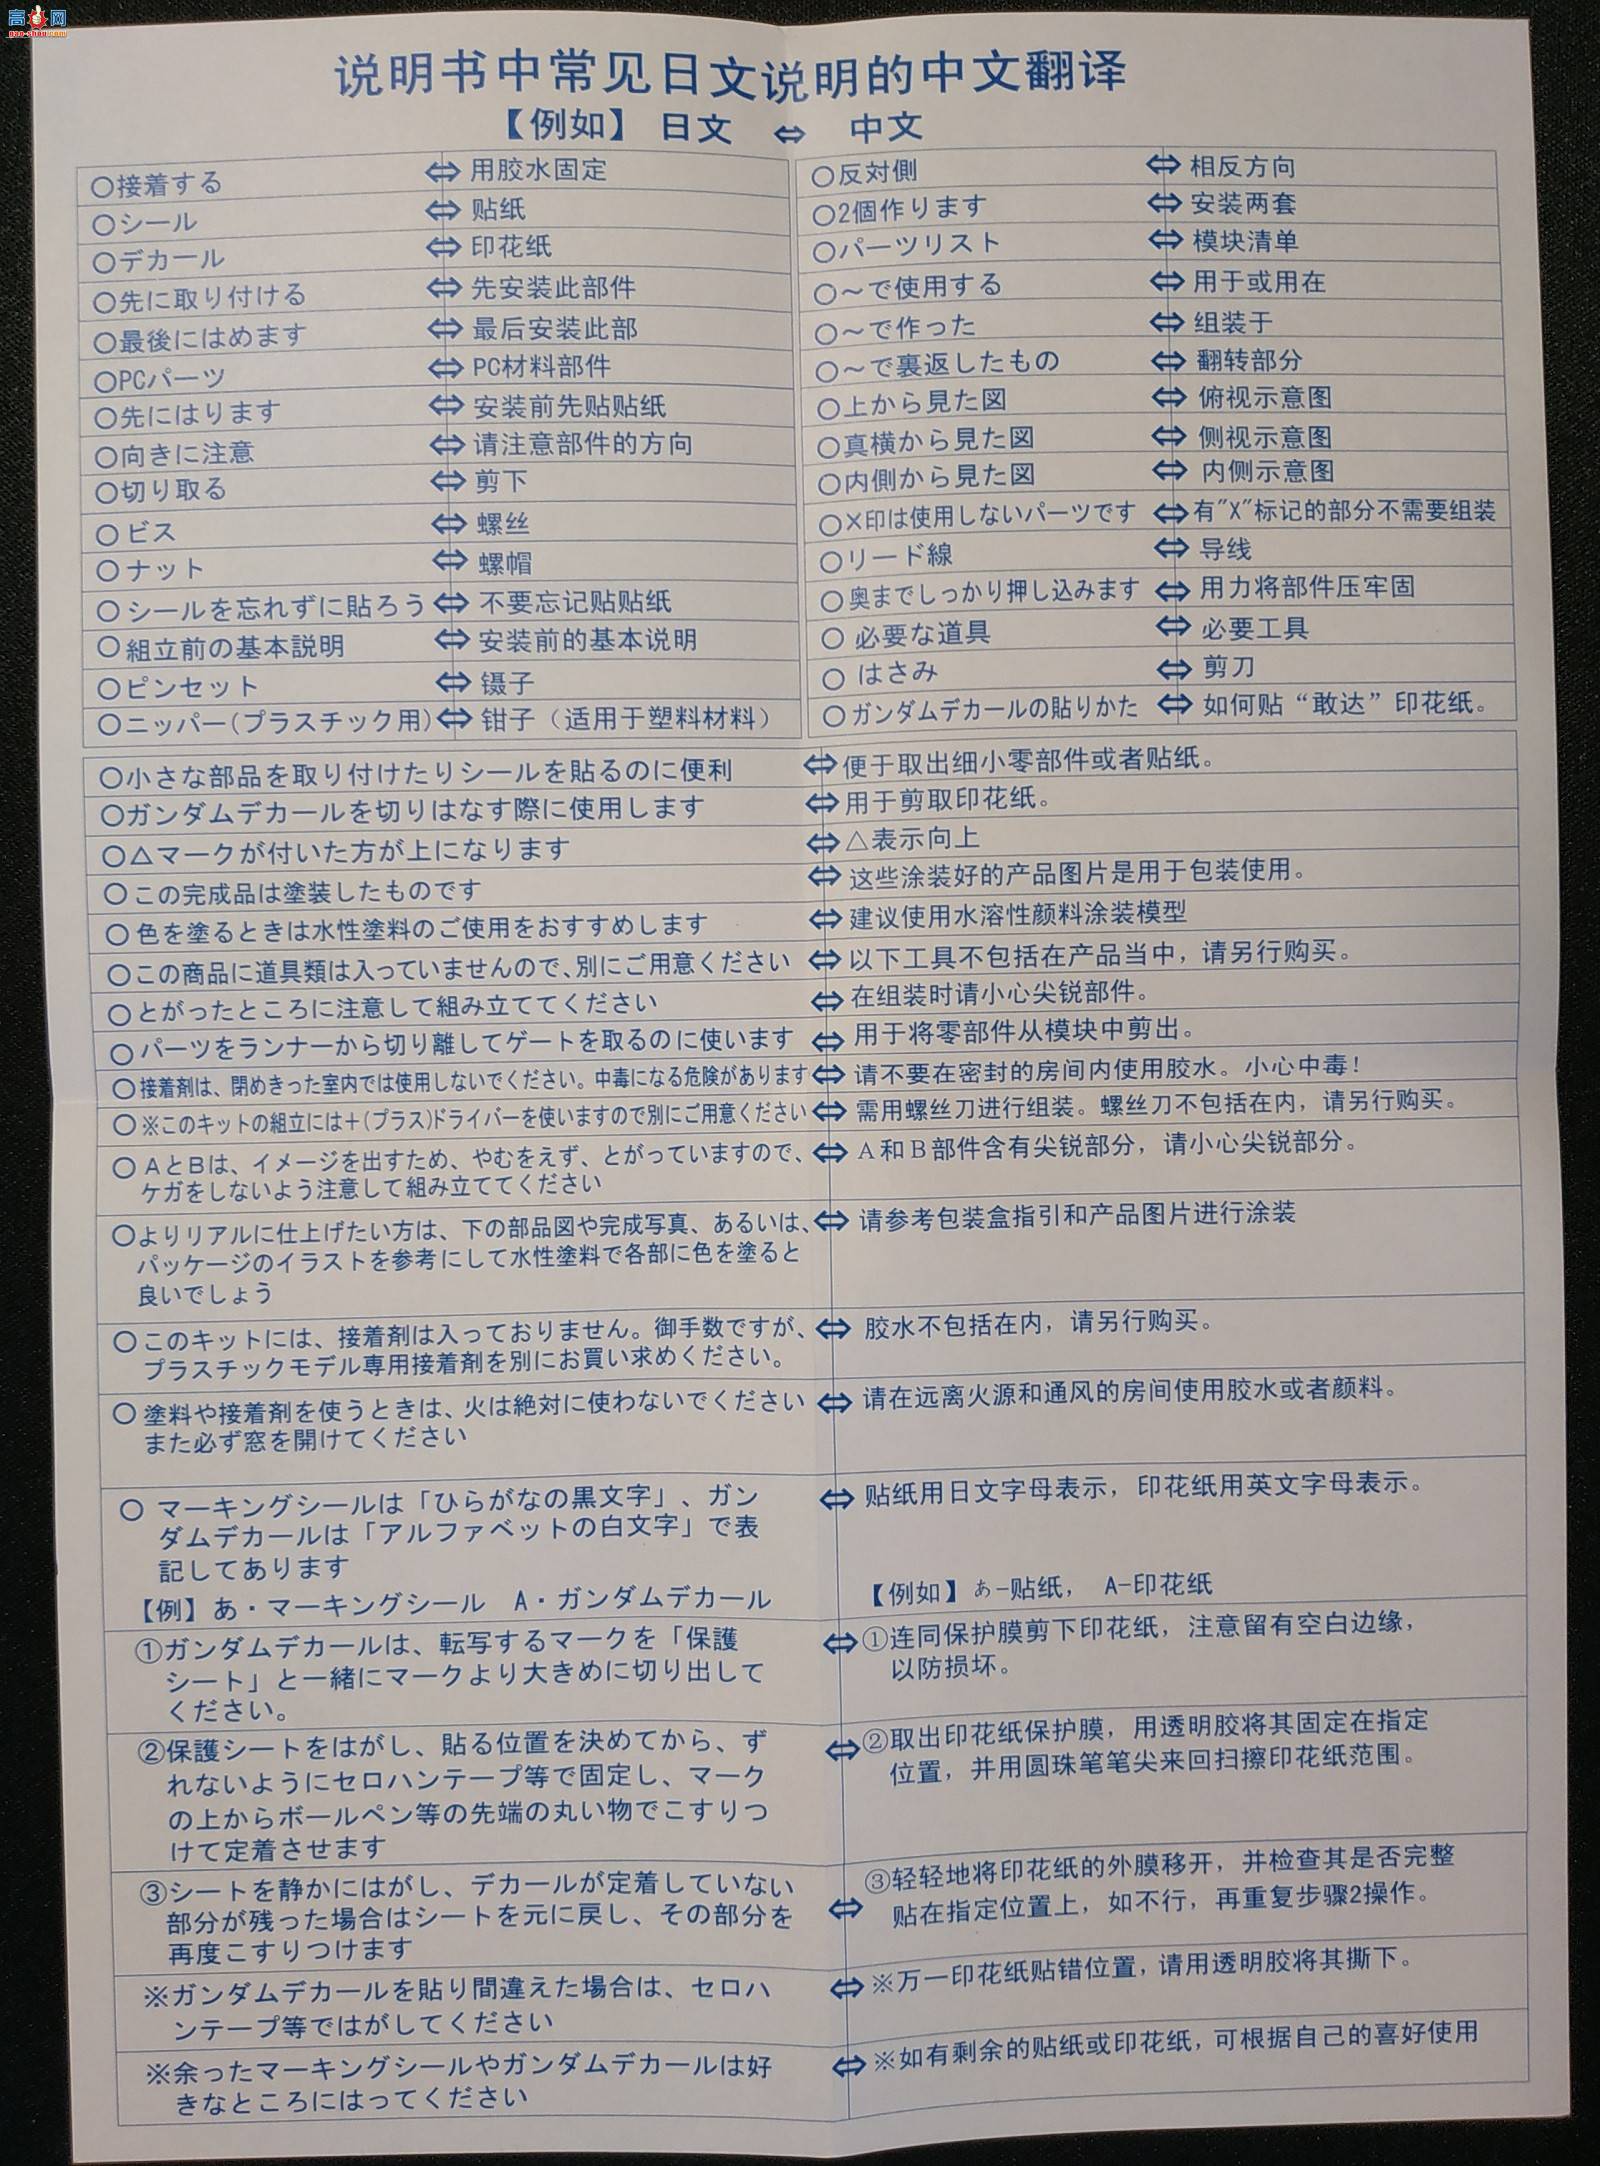 高手网
gao-shou.com
说明书中常见日文说明的中文翻译
【例如】 日文 ⇔ 中文
○接着する ⇔ 用胶水固定
○シール ⇔ 贴纸
○デカール ⇔ 印花纸
○先に取り付ける ⇔ 先安装此部件
○最後にはめます ⇔ 最后安装此部
○PCパーツ ⇔ PC材料部件
○先にはります ⇔ 安装前先贴贴纸
○向きに注意 ⇔ 请注意部件的方向
○切り取る ⇔ 剪下
○ビス ⇔ 螺丝
○ナット ⇔ 螺帽
○シールを忘れずに貼ろう ⇔ 不要忘记贴贴纸
○組立前の基本説明 ⇔ 安装前的基本说明
○ピンセット ⇔ 镊子
○ニッパー(プラスチック用) ⇔ 钳子（适用于塑料材料）
○反対側 ⇔ 相反方向
○2個作ります ⇔ 安装两套
○パーツリスト ⇔ 模块清单
○～で使用する ⇔ 用于或用在
○～で作った ⇔ 组装于
○～で裏返したもの ⇔ 翻转部分
○上から見た図 ⇔ 俯视示意图
○真横から見た図 ⇔ 侧视示意图
○内側から見た図 ⇔ 内侧示意图
○×印は使用しないパーツです ⇔ 有"X"标记的部分不需要组装
○リード線 ⇔ 导线
○奥までしっかり押し込みます ⇔ 用力将部件压牢固
○必要な道具 ⇔ 必要工具
○はさみ ⇔ 剪刀
○ガンダムデカールの貼りかた ⇔ 如何贴“敢达”印花纸。
○小さな部品を取り付けたりシールを貼るのに便利 ⇔ 便于取出细小零部件或者贴纸。
○ガンダムデカールを切りはなす際に使用します ⇔ 用于剪取印花纸。
○△マークが付いた方が上になります ⇔ △表示向上
○この完成品は塗装したものです ⇔ 这些涂装好的产品图片是用于包装使用。
○色を塗るときは水性塗料のご使用をおすすめします ⇔ 建议使用水溶性颜料涂装模型
○この商品に道具類は入っていませんので、別にご用意ください ⇔ 以下工具不包括在产品当中，请另行购买。
○とがったところに注意して組み立ててください ⇔ 在组装时请小心尖锐部件。
○パーツをランナーから切り離してゲートを取るのに使います ⇔ 用于将零部件从模块中剪出。
○接着剤は、閉めきった室内では使用しないでください。中毒になる危険があります ⇔ 请不要在密封的房间内使用胶水。小心中毒！
○※このキットの組立には＋(プラス)ドライバーを使いますので別にご用意ください ⇔ 需用螺丝刀进行组装。螺丝刀不包括在内，请另行购买。
○AとBは、イメージを出すため、やむをえず、とがっていますので、 ⇔ A和B部件含有尖锐部分，请小心尖锐部分。
ケガをしないよう注意して組み立ててください
○よりリアルに仕上げたい方は、下の部品図や完成写真、あるいは、 ⇔ 请参考包装盒指引和产品图片进行涂装
パッケージのイラストを参考にして水性塗料で各部に色を塗ると
良いでしょう
○このキットには、接着剤は入っておりません。御手数ですが、 ⇔ 胶水不包括在内，请另行购买。
プラスチックモデル専用接着剤を別にお買い求めください。
○塗料や接着剤を使うときは、火は絶対に使わないでください ⇔ 请在远离火源和通风的房间使用胶水或者颜料。
また必ず窓を開けてください
○マーキングシールは「ひらがなの黒文字」、ガン ⇔ 贴纸用日文字母表示，印花纸用英文字母表示。
ダムデカールは「アルファベットの白文字」で表
記してあります
【例】あ・マーキングシール A・ガンダムデカール 【例如】あ-贴纸， A-印花纸
①ガンダムデカールは、転写するマークを「保護 ⇔ ①连同保护膜剪下印花纸，注意留有空白边缘，
シート」と一緒にマークより大きめに切り出して 以防损坏。
ください。
②保護シートをはがし、貼る位置を決めてから、ず ⇔ ②取出印花纸保护膜，用透明胶将其固定在指定
れないようにセロハンテープ等で固定し、マーク 位置，并用圆珠笔笔尖来回扫擦印花纸范围。
の上からボールペン等の先端の丸い物でこすりつ
けて定着させます
③シートを静かにはがし、デカールが定着していない ⇔ ③轻轻地将印花纸的外膜移开，并检查其是否完整
部分が残った場合はシートを元に戻し、その部分を 贴在指定位置上，如不行，再重复步骤2操作。
再度こすりつけます
※ガンダムデカールを貼り間違えた場合は、セロハ ⇔ ※万一印花纸贴错位置，请用透明胶将其撕下。
ンテープ等ではがしてください
※余ったマーキングシールやガンダムデカールは好 ⇔ ※如有剩余的贴纸或印花纸，可根据自己的喜好使用
きなところにはってください